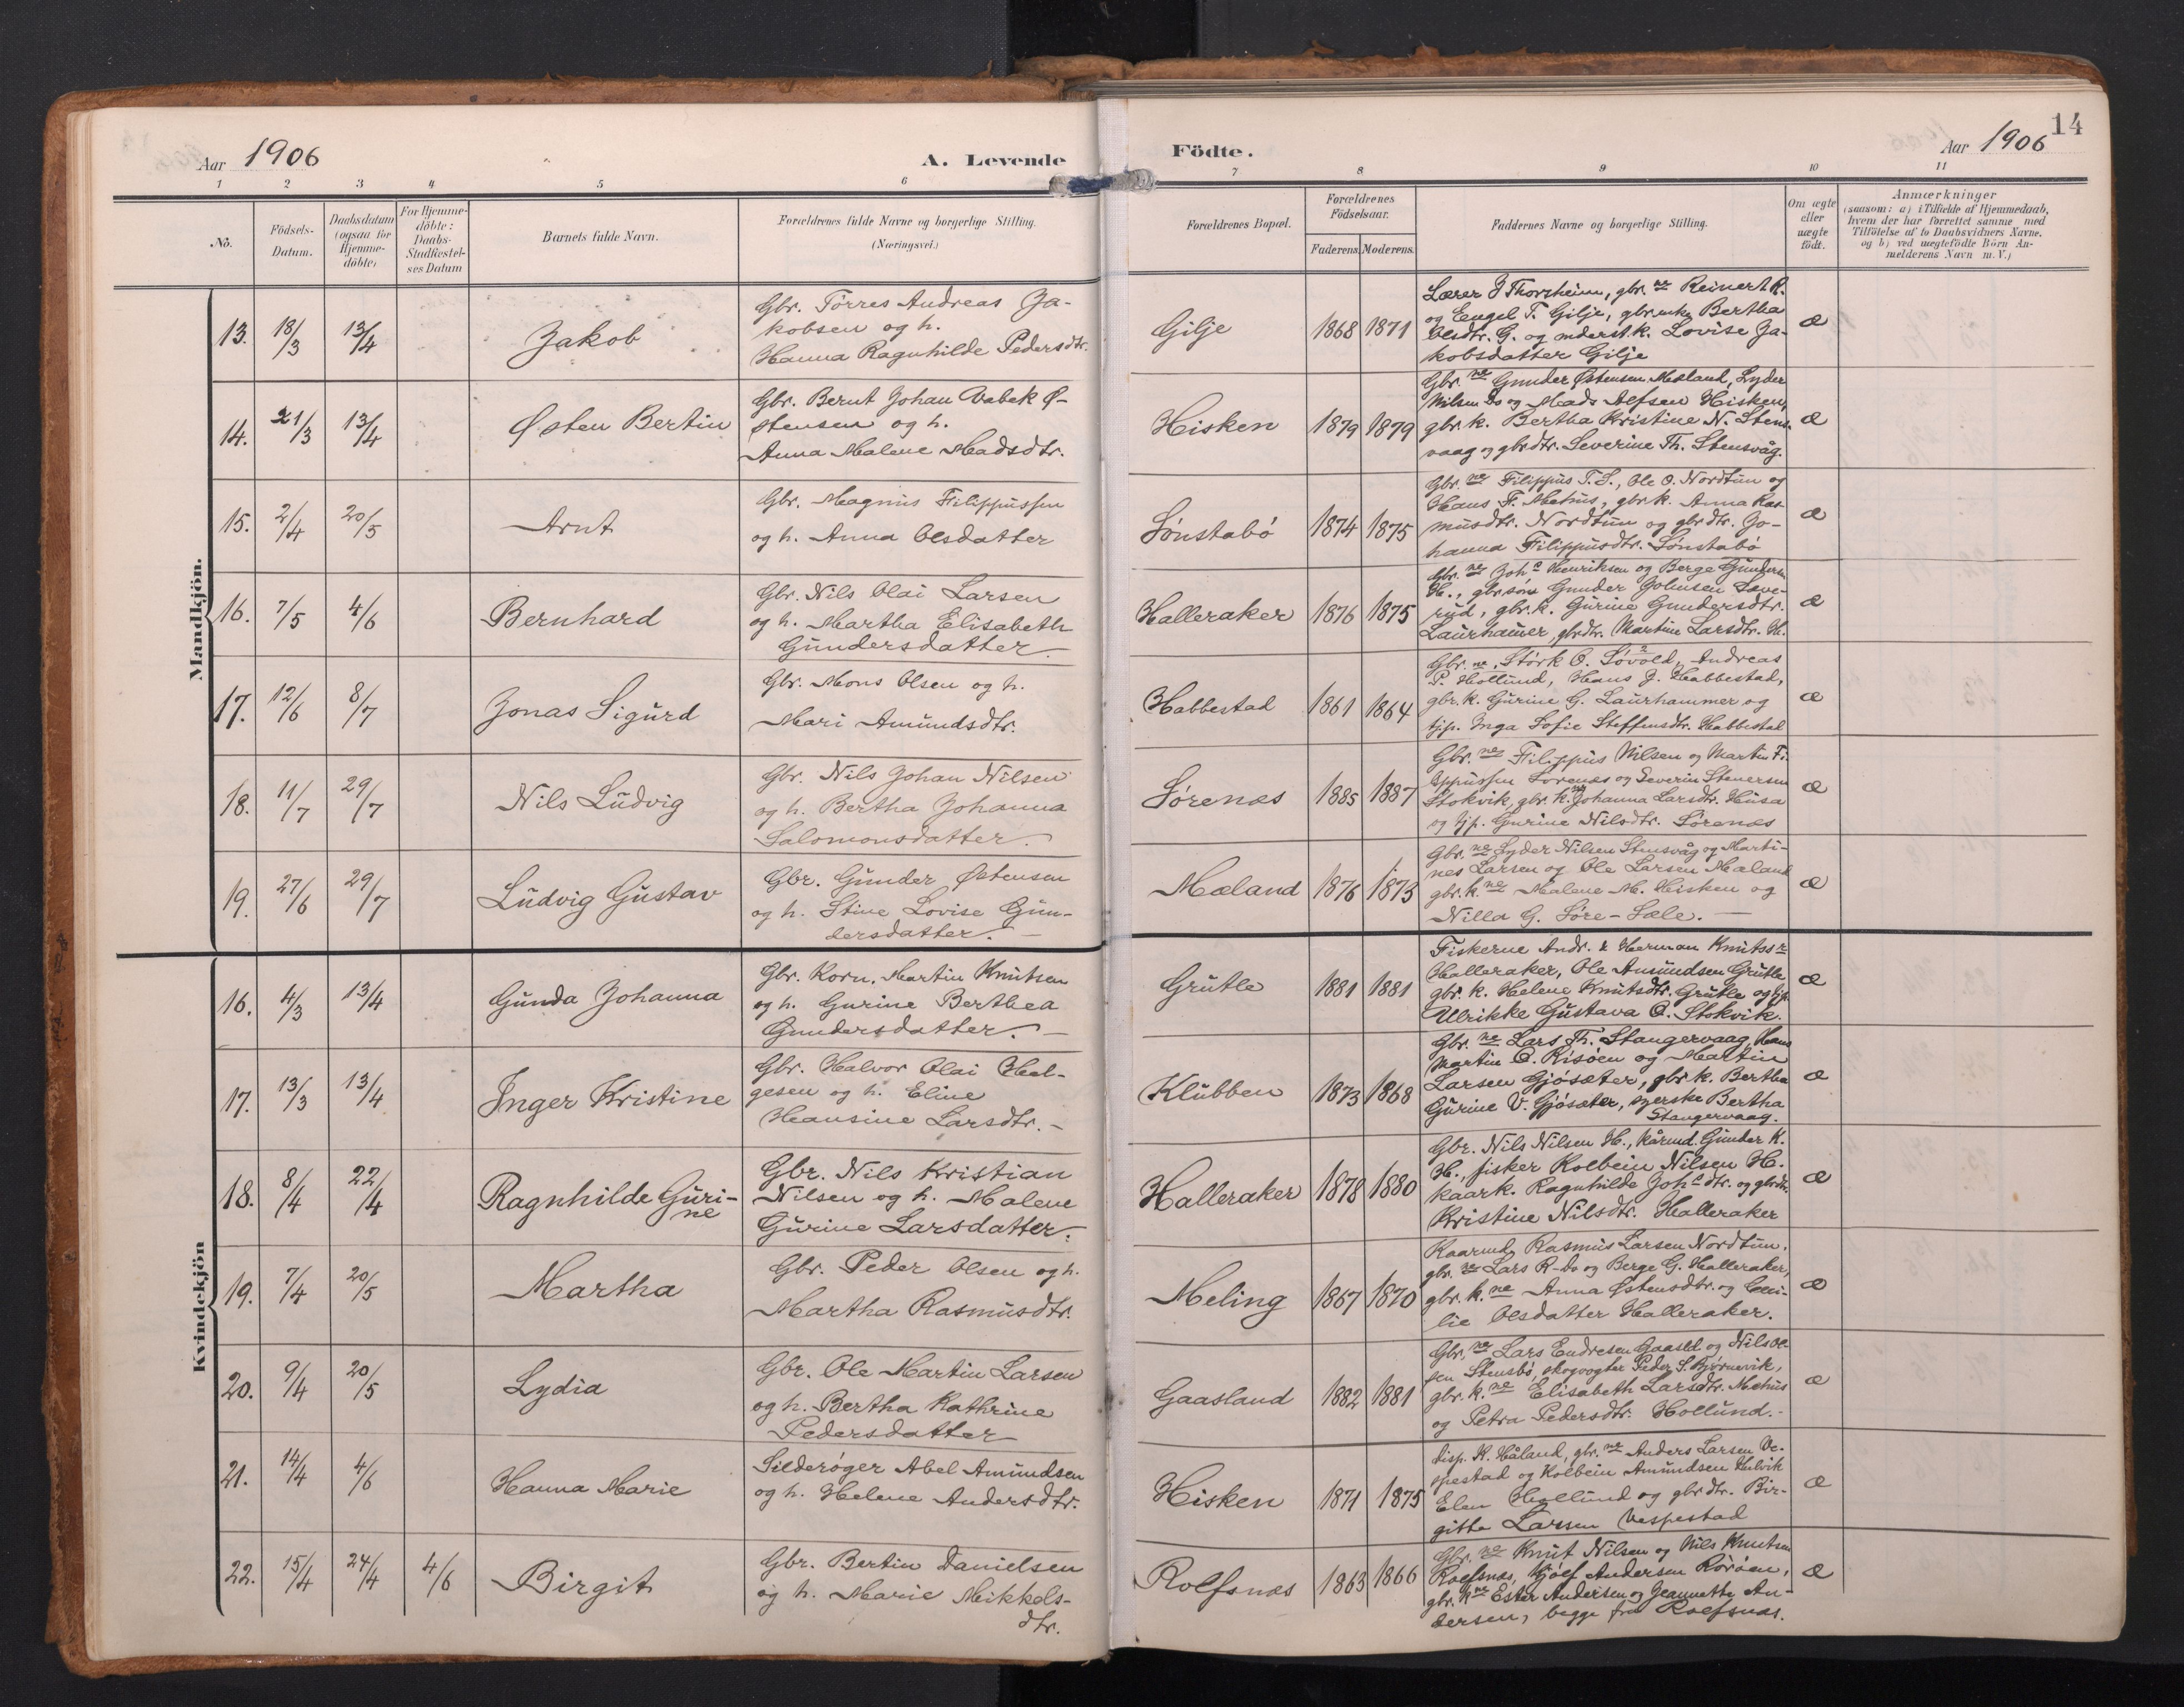 Aar 1906
A. Levende
Födte.
Aar 1906
14
1 2 3 4 5 6 7 8 9 10 11
No.
Födsels-
Datum.
Daabsdatum
(ogsaa for
Hjemme-
döbte)
For Hjemme-
döbte:
Daabs-
Stadfæstel-
ses Datum
Barnets fulde Navn.
Forældrenes fulde Navne og borgerlige Stilling.
(Næringsvei.)
Forældrenes Bopæl.
Forældrenes
Födselsaar.
Faderens. Moderens.
Faddernes Navne og borgerlige Stilling.
Om ægte
eller
uægte
födt.
Anmærkninger
(saasom: a) i Tilfælde af Hjemmedaab,
hvem der har forrettet samme med
Tilföielse af to Daabsvidners Navne,
og b) ved uægtefödte Börn An-
melderens Navn m. V.)
Mandkjön.
13. 18/3 13/4 Jakob
Gbr. Tørres Andreas Ja-
kobsen og h.
Hanna Ragnhilde Pedersdtr.
Gilje 1868 1871
Lærer J Thorsheim, gbr.ne Reinert R.
og Engel T. Gilje, gbr.enke Bertha
Olsdtr. G. og Lovise Ja-
kobsdatter Gilje
æ
14. 21/3 13/4 Østen Bertin
Gbr. Bernt Johan Vabek Ø-
stensen og h.
Anna Malene Madsdtr.
Hisken 1879 1879
Gbr.ne Gunder Østensen Mæland, Lyder
Nilsen Do og Mads Alfsen Hisken,
gbr k. Bertha Kristine N. Stens-
vaag og gbrdtr. Severine Th. Stensvåg.
æ
15. 2/4 20/5 Arnt
Gbr. Magnus Filippussen
og h. Anna Olsdatter
Sønstabø 1874 1875
Gbr.ne Filippus T. S., Ole O. Nordtun og
Hans F. Mehus, gbr k. Anna Ras-
musdtr. Nordtun og gbrdtr. Jo-
hanna Filippusdtr. Sønstabø
æ
16. 7/5 4/6 Bernhard
Gbr. Nils Olai Larsen
og h. Martha Elisabeth
Gundersdatter
Halleraker 1876 1875
Gbr.ne Joh.s Henriksen og Berge Gundersen
H., gbr søn Gunder Johnsen Sæve-
rud, gbr. k. Gurine Gundersdtr.
Laurhamer, gbrdtr. Martine Larsdtr. H.
æ
17. 12/6 8/7 Jonas Sigurd
Gbr. Mons Olsen og h.
Mari Amundsdtr.
Habbestad 1861 1864
Gbr.ne Størk O. Søvold, Andreas
P. Hollund, Hans J. Habbestad,
gbr. k. Gurine G. Laurhammer og
tjp. Inga Sofie Steffensdtr. Habbestad
æ
18. 11/7 29/7 Nils Ludvig
Gbr. Nils Johan Nilsen
og h. Bertha Johanna
Salomonsdatter.
Sørenæs 1885 1887
Gbr.ne Filippus Nilsen og Martin Fi-
lippussen Sørenæs og Severin Stenersen
Stokvik, gbr. k. Johanna Larsdtr. Husa
og tjp. Gurine Nilsdtr. Sørenæs
æ
19. 27/6 29/7 Ludvig Gustav
Gbr. Gunder Østensen
og h. Stine Lovise Gun-
dersdatter.
Mæland 1876 1873
Gbr.ne Lyder Nilsen Stensvåg og Marti-
nes Larsen og Ole Larsen Mæland
gbr. k.ne Malene M. Hisken og
Nilla G. Søre-Sæle.
æ
Kvindekjön
16. 4/3 13/4 Gunda Johanna
Gbr. Korn. Martin Knutsen
og h. Gurine Berthea
Gundersdatter.
Grutle 1881 1881
Fiskerne Andr. & Herman Knutss.n
Halleraker, Ole Amundsen Grutle
gbr. k. Helene Knutsdtr. Grutle og tjp.
Ulrikke Gustava O. Stokvik.
æ
17. 13/3 13/4 Inger Kristine
Gbr. Halvor Olai Hel-
gesen og h. Eline
Hansine Larsdtr.
Klubben 1873 1868
Gbr.ne Lars Th. Stangervaag, Hans
Martin O. Risøen og Martin
Larsen Gjøsæter, gbr k. Bertha
Gurine V. Gjøsæter, syerske Bertha
Stangervaag.
æ
18. 8/4 22/4 Ragnhilde Guri-
ne
Gbr. Nils Kristian
Nilsen og h. Malene
Gurine Larsdatter.
Halleraker 1878 1880
Gbr. Nils Nilsen H., kårmd. Gunder K.
H., fisker Kolbein Nilsen H.
kaark. Ragnhilde Joh.s dtr. og gbrdtr.
Kristine Nilsdtr. Halleraker
æ
19. 7/4 20/5 Martha
Gbr. Peder Olsen og h.
Martha Rasmusdtr.
Meling 1867 1870
Kaarmd. Rasmus Larsen Nordtun,
gbr.ne Lars R. Do og Berge G. Halleraker,
gbr. k.ne Anna Østensdtr. og Emi-
lie Olsdatter Halleraker.
æ
20. 9/4 20/5 Lydia
Gbr. Ole Martin Larsen
og h. Bertha Kathrine
Pedersdatter
Gaasland 1882 1881
Gbr.ne Lars Endresen Gaasld og Nils Ol-
sen Stensbø, skogvogter Peder S. Bjørnevik,
gbr. k.ne Elisabeth Larsdtr. Mæhus
og Petra Pedersdtr. Hollund.
æ
21. 14/4 4/6 Hanna Marie
Silderøger Abel Amundsen
og h. Helene Andersdtr.
Hisken 1871 1875
Disp. K. Håland, gbr.ne Anders Larsen Ve-
spestad og Kolbein Amundsen Hulvik
Elen Hollund og gbrdtr. Bir-
gitte Larsen Vespestad
æ
22. 15/4 24/4 4/6 Birgit
Gbr. Bertin Danielsen
og h. Marie Mikkels-
dtr.
Rolfsnæs 1863 1866
Gbr.ne Knut Nilsen og Nils Knutsen
Rolfsnæs, Andersen Rørøen,
gbr. k.ne Ester Andersen og Jeannette An-
dersen, begge fra Rolfsnæs.
æ